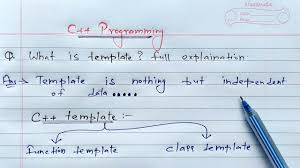 C++ Programming
Q. What is template? full explaination
Ans → Template is nothing but independent
of data.....
C++ template :-
function template
class template